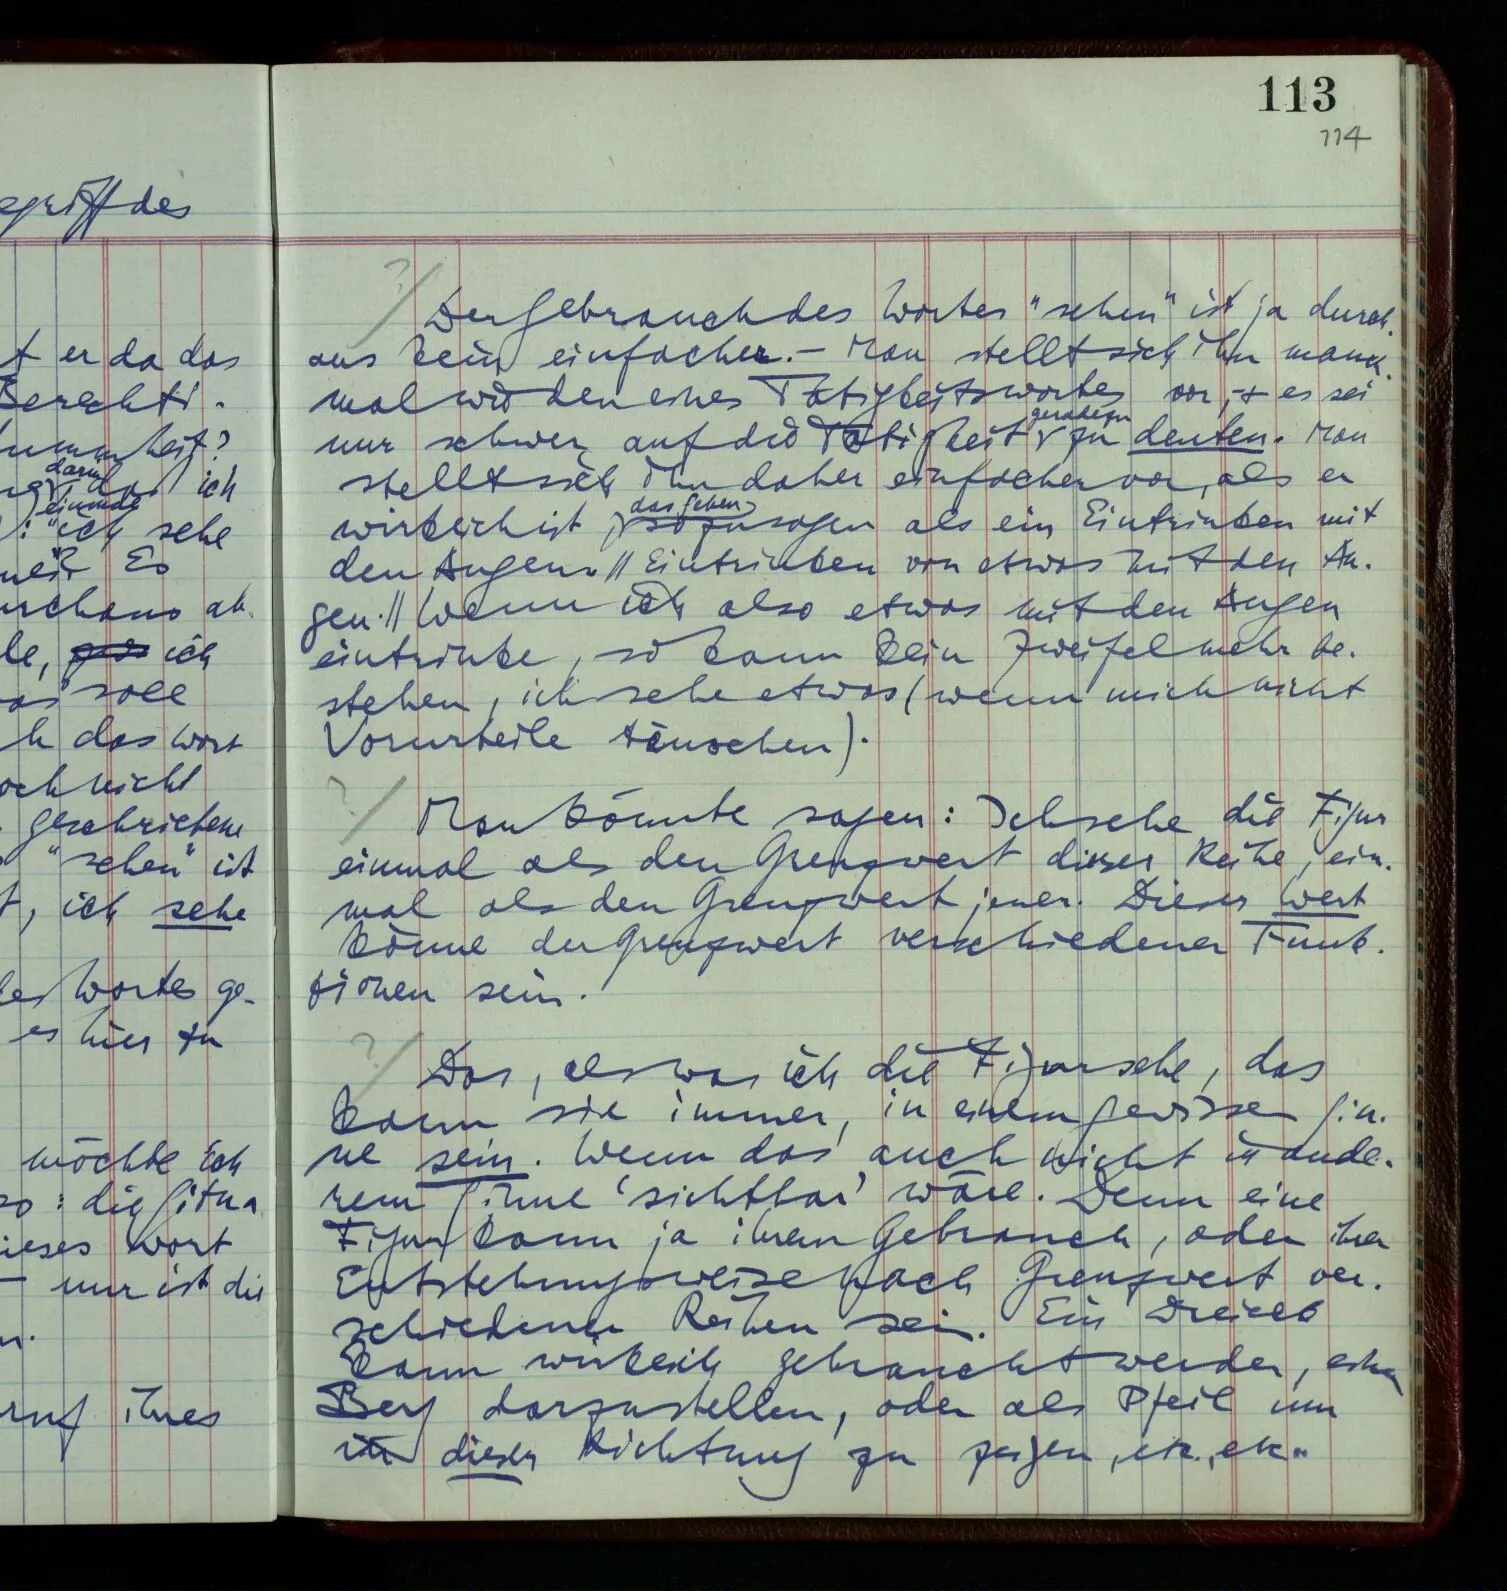 113
114
egriff des
t er da das
Berechti-
dummheit?
darin
das ich
einmal
: "ich sehe
Es
durchaus ab-
le, ich
soll
h das Wort
och nicht
geschriebene
"sehen" ist
t, ich sehe
des Wortes ge-
es hier zu
möchte ich
so: die Situa
ieses Wort
– nur ist die
n.
ruf ihres
?/ Der Gebrauch des Wortes "sehen" ist ja durch-
aus kein einfacher. – Man stellt sich ihn manch-
mal wie den eines Tätigkeitswortes vor, + es sei
nur schwer, auf die Tätigkeit geradezu zu deuten. Man
stellt sich ihn daher einfacher vor, als er
wirklich ist, das Sehen sozusagen als ein Eintrinken mit
den Augen. // Eintrinken von etwas mit den Au-
gen. // Wenn ich also etwas mit den Augen
eintrinke, so kann kein Zweifel mehr be-
stehen, ich sehe etwas (wenn mich nicht
Vorurteile täuschen).
?/ Man könnte sagen: Ich sehe die Figur
einmal als den Grenzwert dieser Reihe, ein-
mal als den Grenzwert jener. Dieser Wert
könne der Grenzwert verschiedener Funk-
tionen sein.
?/ Das, als was ich die Figur sehe, das
kann sie immer, in einem gewissen Sin-
ne sein. Wenn das auch nicht in ande-
rem Sinne 'sichtbar' wäre. Denn eine
Figur kann ja ihrem Gebrauch, oder ihrer
Entstehungsweise nach Grenzwert ver-
schiedener Reihen sein. Ein Dreieck
kann wirklich gebraucht werden, einen
Berg darzustellen, oder als Pfeil um
in dieser Richtung zu zeigen, etc., etc..